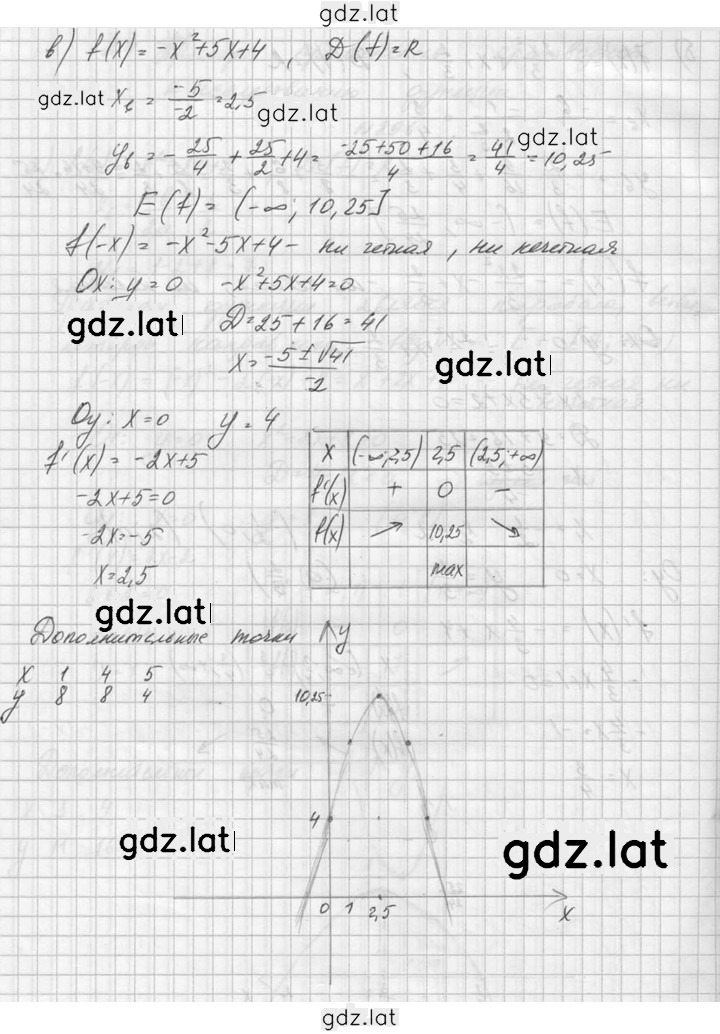 gdz.lat
в) f(x) = -x²+5x+4 , D(f)=R
gdz.lat xв = -5/-2 = 2,5 gdz.lat
yв = -25/4 + 25/2 + 4 = -25+50+16/4 = 41/4 = 10,25 gdz.lat
E(f) = (-∞; 10,25]
f(-x) = -x²-5x+4 - ни четная, ни нечетная
Ox: y=0 -x²+5x+4=0
gdz.lat D=25+16=41
x = -5±√41/-2 gdz.lat
Oy: x=0 y=4
f'(x) = -2x+5
-2x+5=0
-2x=-5
x=2,5
x (-∞; 2,5) 2,5 (2,5; +∞)
f'(x) + 0 -
f(x) ↗ 10,25 ↘
max
gdz.lat
Дополнительные точки
x 1 4 5
y 8 8 4
y
10,25
4
0 1 2,5 x
gdz.lat
gdz.lat
gdz.lat